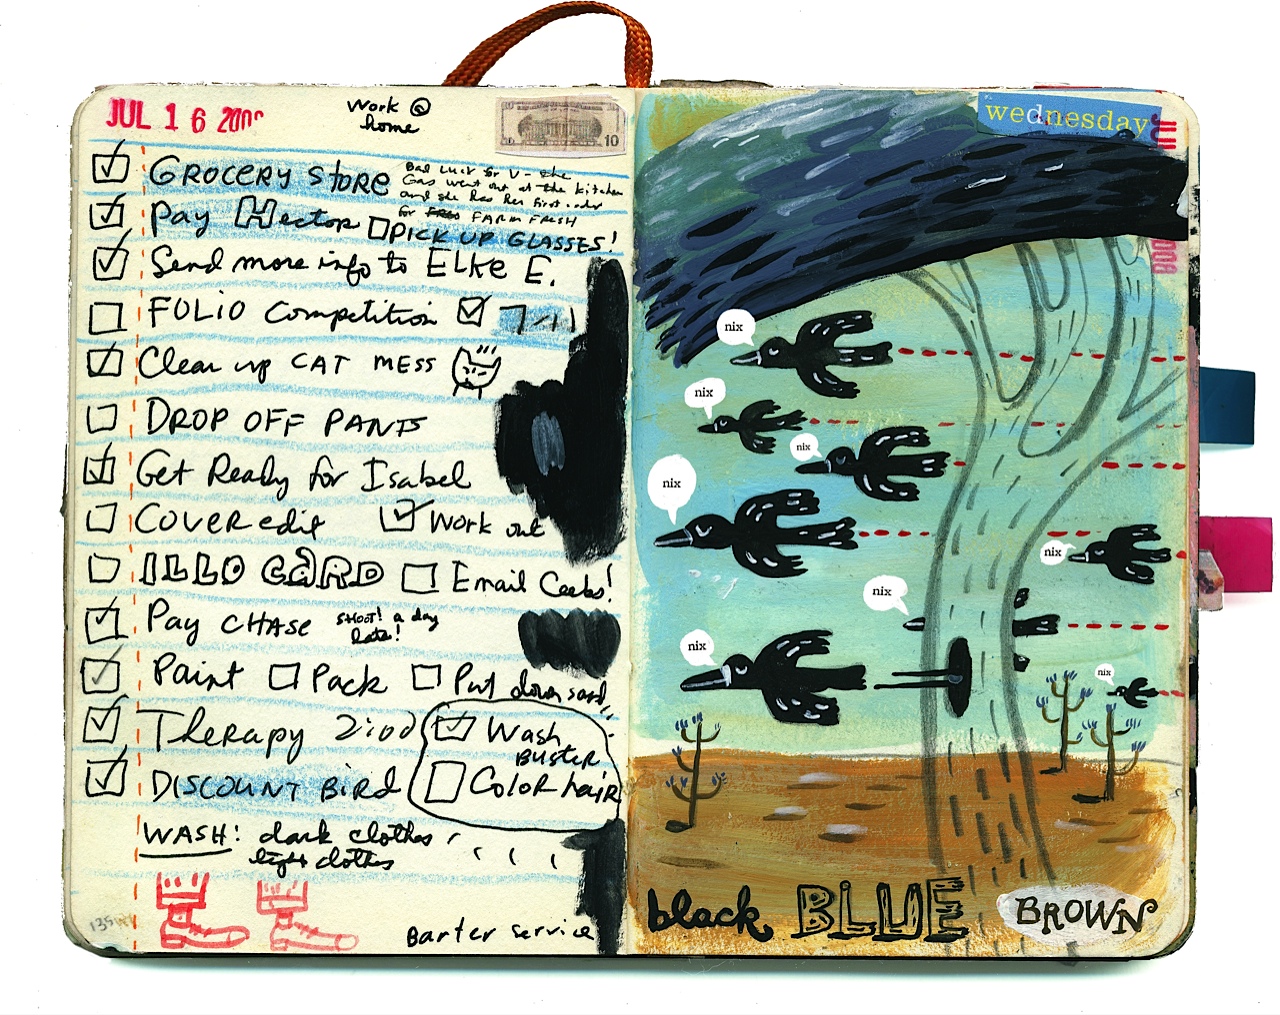 JUL 16 200
Work @
home
10
GROCERY STORE
Bad luck for V- the
Gas went out at the kitchen
and she has her first order
for FARM FRESH
Pay Hector PICK UP GLASSES!
Send more info to ELKE E.
FOLIO Competition 7-11
Clean up CAT MESS
DROP OFF PANTS
Get Ready for Isabel
COVER edit Work out
ILLO CARD Email Ceebs!
Pay CHASE SHOOT! a day
late!
Paint Pack Put down sand
Therapy 2:00 Wash
BUSTER
DISCOUNT BIRD Color hair
WASH: dark clothes
light clothes
135
Barter service
wednesday
nix
nix
nix
nix
nix
nix
nix
nix
black BLUE BROWN